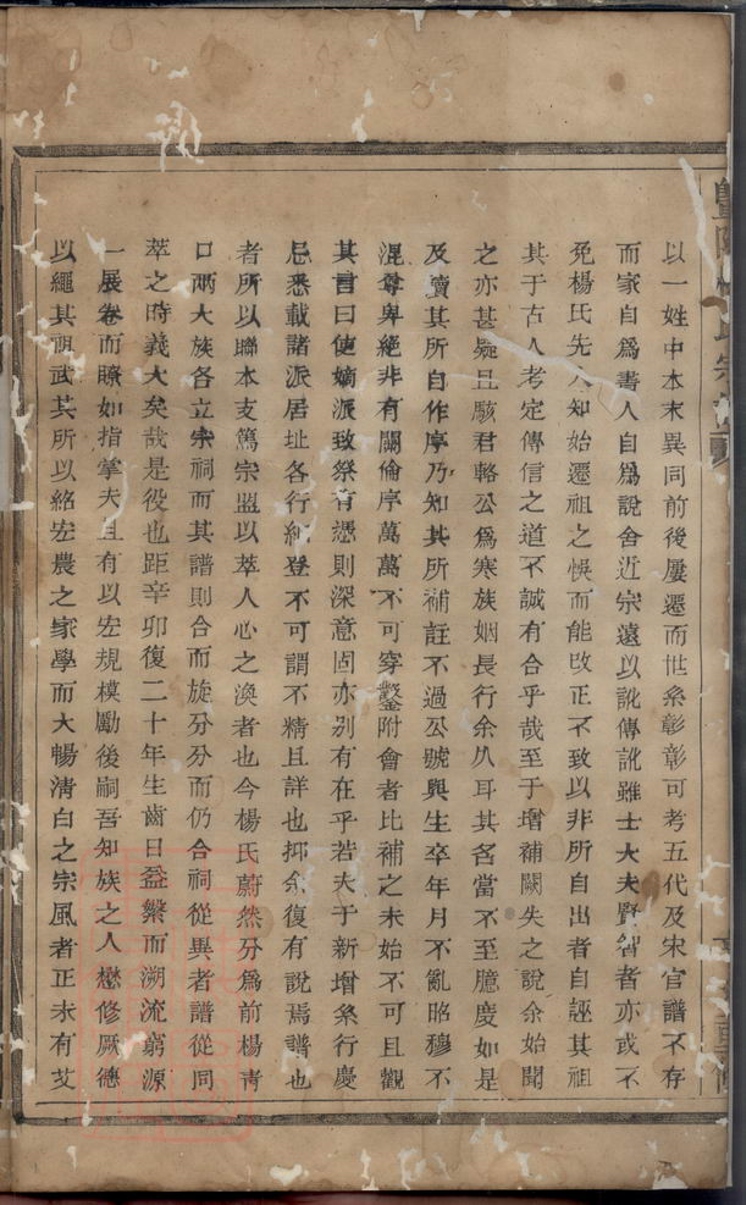 以一姓中本末異同前後屢遷而世系彰彰可考五代及宋官譜不存
而家自為書人自為說舍近宗遠以訛傳訛雖士大夫賢智者亦或不
免楊氏先人知始遷祖之悞而能改正不致以非所自出者自誣其祖
其于古人考定傳信之道不誠有合乎哉至于增補闕失之說余始聞
之亦甚疑且駭君輅公為寒族姻長行余久耳其名當不至臆度如是
及讀其所自作序乃知其所補註不過公號與生卒年月不亂昭穆不
混尊卑絕非有關倫序萬萬不可穿鑿附會者比補之未始不可且觀
其言曰使嫡派致祭有憑則深意固亦别有在乎若夫于新增系行慶
忌悉載諸派居址各行細登不可謂不精且詳也抑余復有說焉譜也
者所以聯本支篤宗盟以萃人心之渙者也今楊氏蔚然分為前楊青
口兩大族各立宗祠而其譜則合而旋分分而仍合祠從異者譜從同
萃之時義大矣哉是役也距辛卯復二十年生齒日益繁而溯流窮源
一展卷而瞭如指掌夫且有以宏規模勵後嗣吾知族之人懋修厥德
以繩其祖武其所以紹宏農之家學而大暢清白之宗風者正未有艾